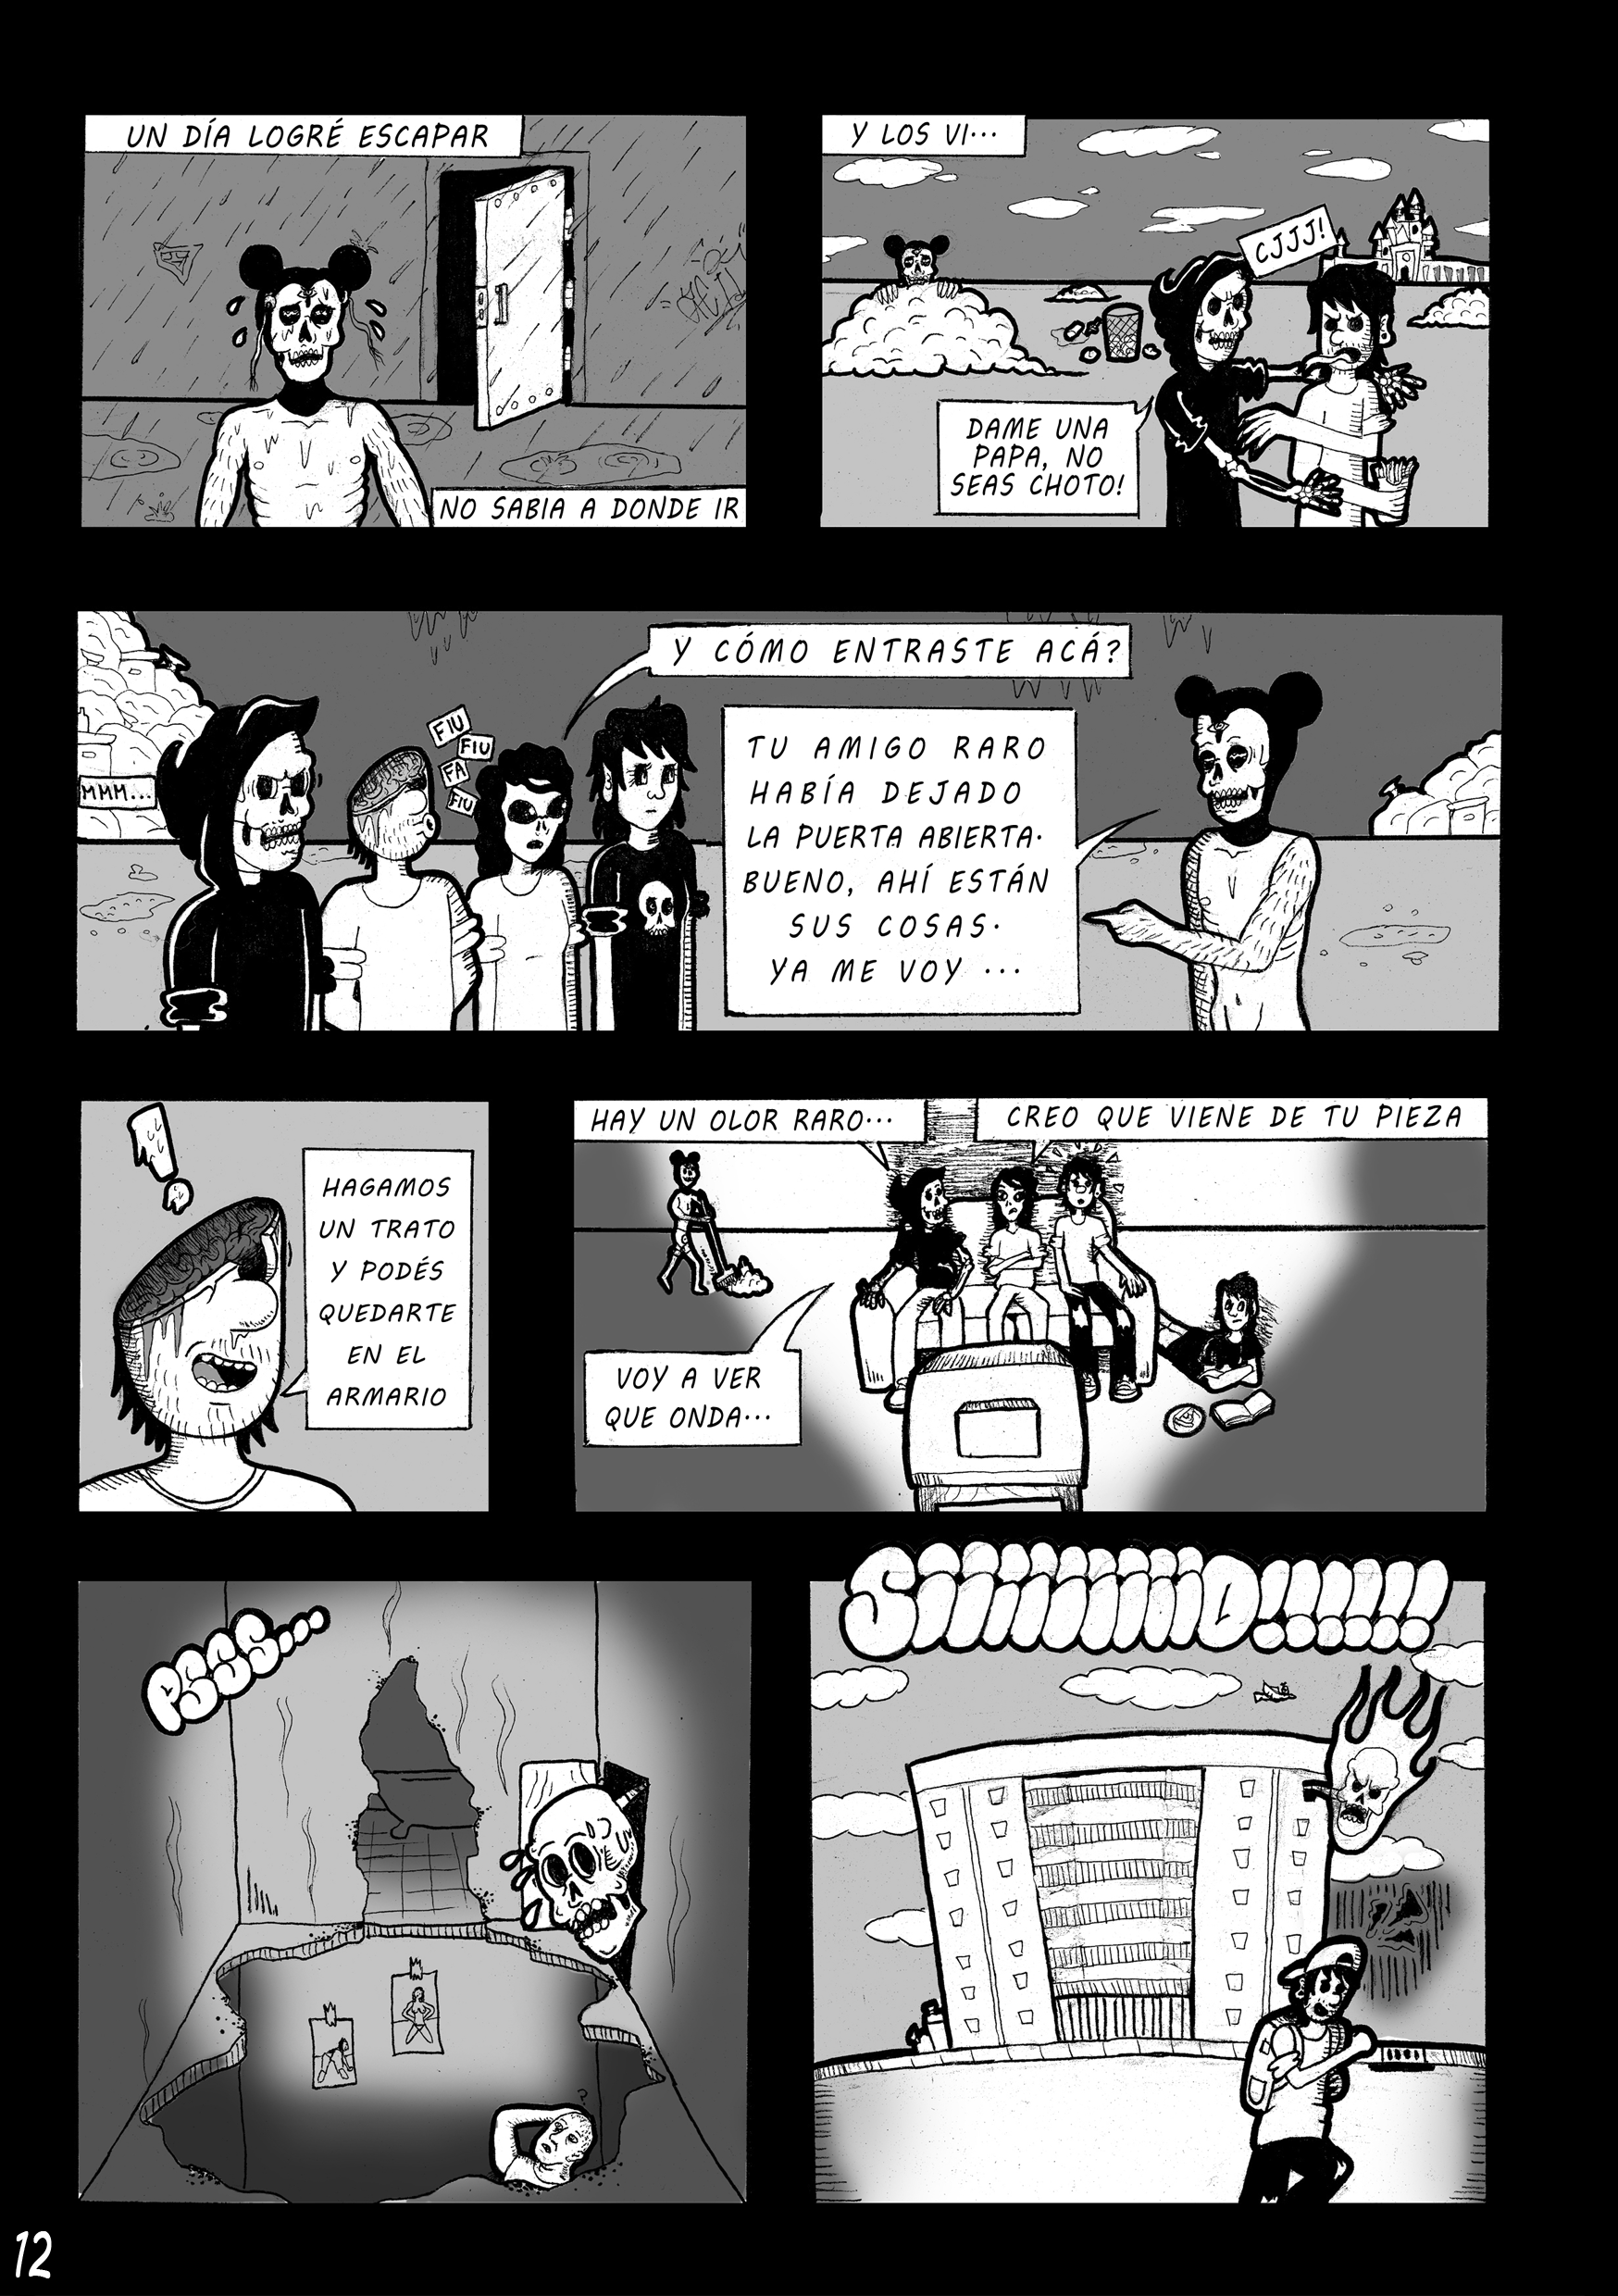 UN DÍA LOGRÉ ESCAPAR
NO SABIA A DONDE IR
Y LOS VI...
CJJJ!
DAME UNA
PAPA, NO
SEAS CHOTO!
MMM...
FIU
FIU
FA
FIU
Y CÓMO ENTRASTE ACÁ?
TU AMIGO RARO
HABÍA DEJADO
LA PUERTA ABIERTA.
BUENO, AHÍ ESTÁN
SUS COSAS.
YA ME VOY ...
HAGAMOS
UN TRATO
Y PODÉS
QUEDARTE
EN EL
ARMARIO
HAY UN OLOR RARO...
CREO QUE VIENE DE TU PIEZA
VOY A VER
QUE ONDA...
PSSS...
?
12